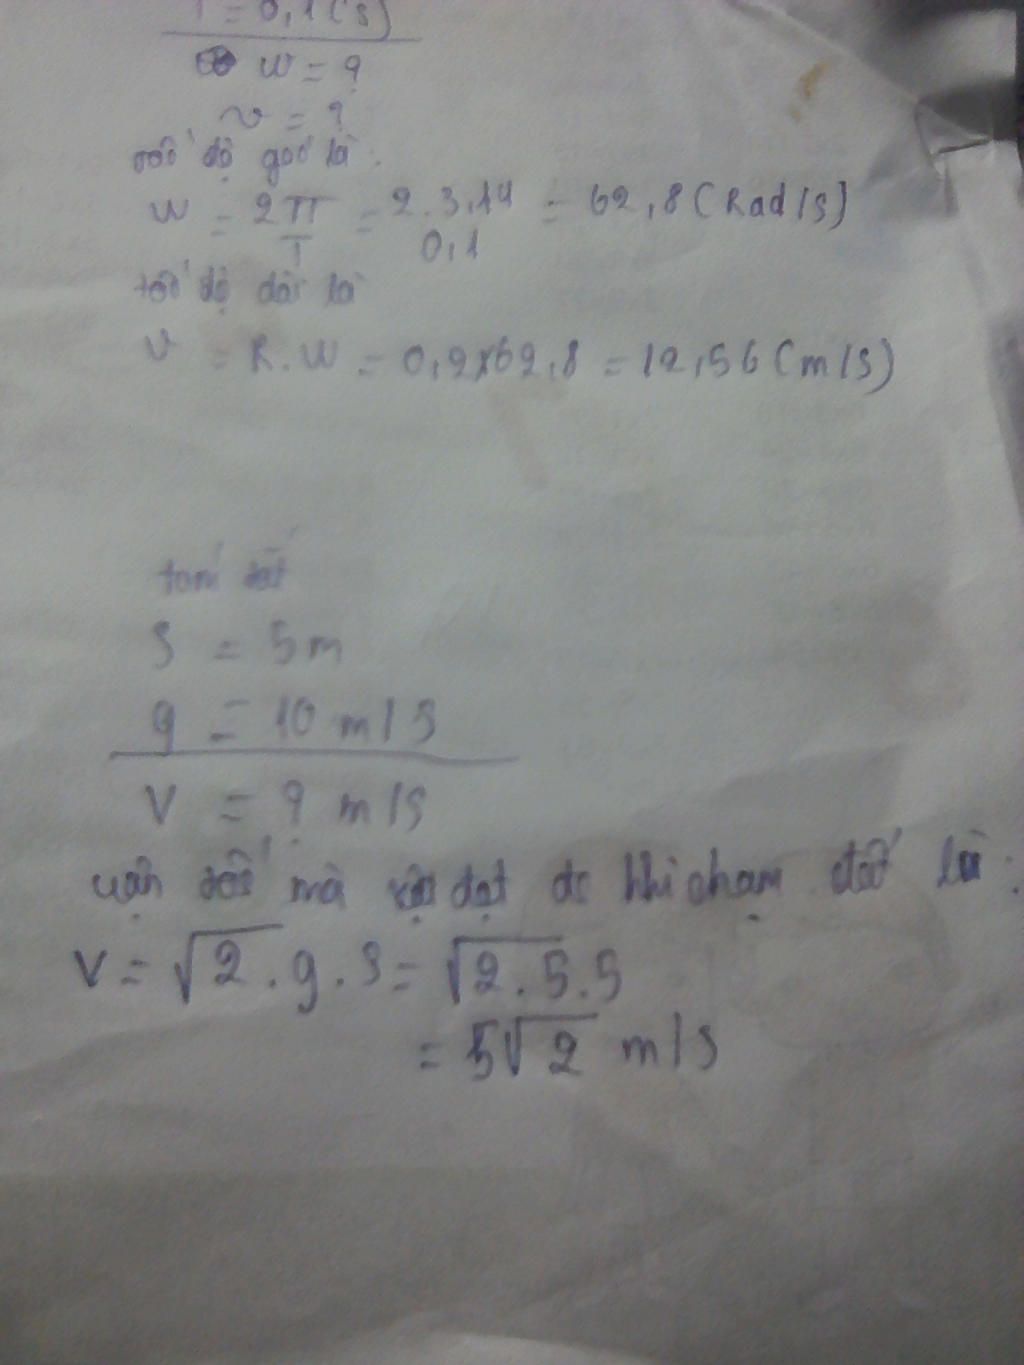 T = 0,1(s)
w = ?
v = ?
tốc độ góc là:
w = 2π/T = 2.3,14/0,1 = 62,8(Rad/s)
tốc độ dài là
v = R.w = 0,2x62,8 = 12,56(m/s)
tóm tắt
S = 5m
g = 10 m/s
V = ? m/s
vận tốc mà vật đạt đc khi chạm đất là:
V = √2.g.s = √2.5.5
= 5√2 m/s